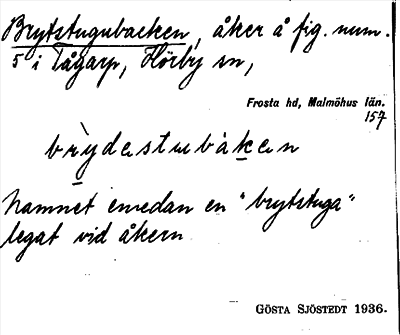 Brytstugubacken, åker å fig. num.
5 i Tågarp, Hörby sn,
Frosta hd, Malmöhus län.
157
brỳdastubakan
Namnet emedan en "brytstuga"
legat vid åkern
GÖSTA SJÖSTEDT 1936.